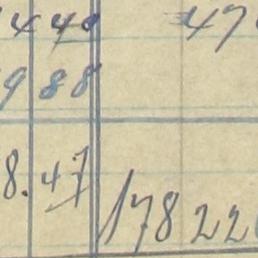 440 47
988
8.47 17822